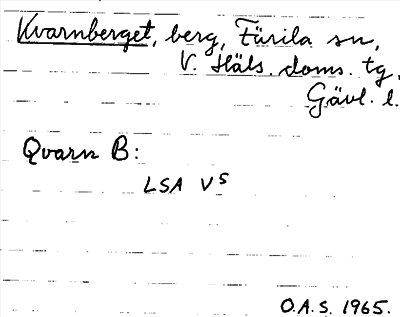 Kvarnberget, berg, Färila sn,
V. Häls. doms. tg,
Gävl. l.
Qvarn B:
LSA V⁵
O.A.S. 1965.